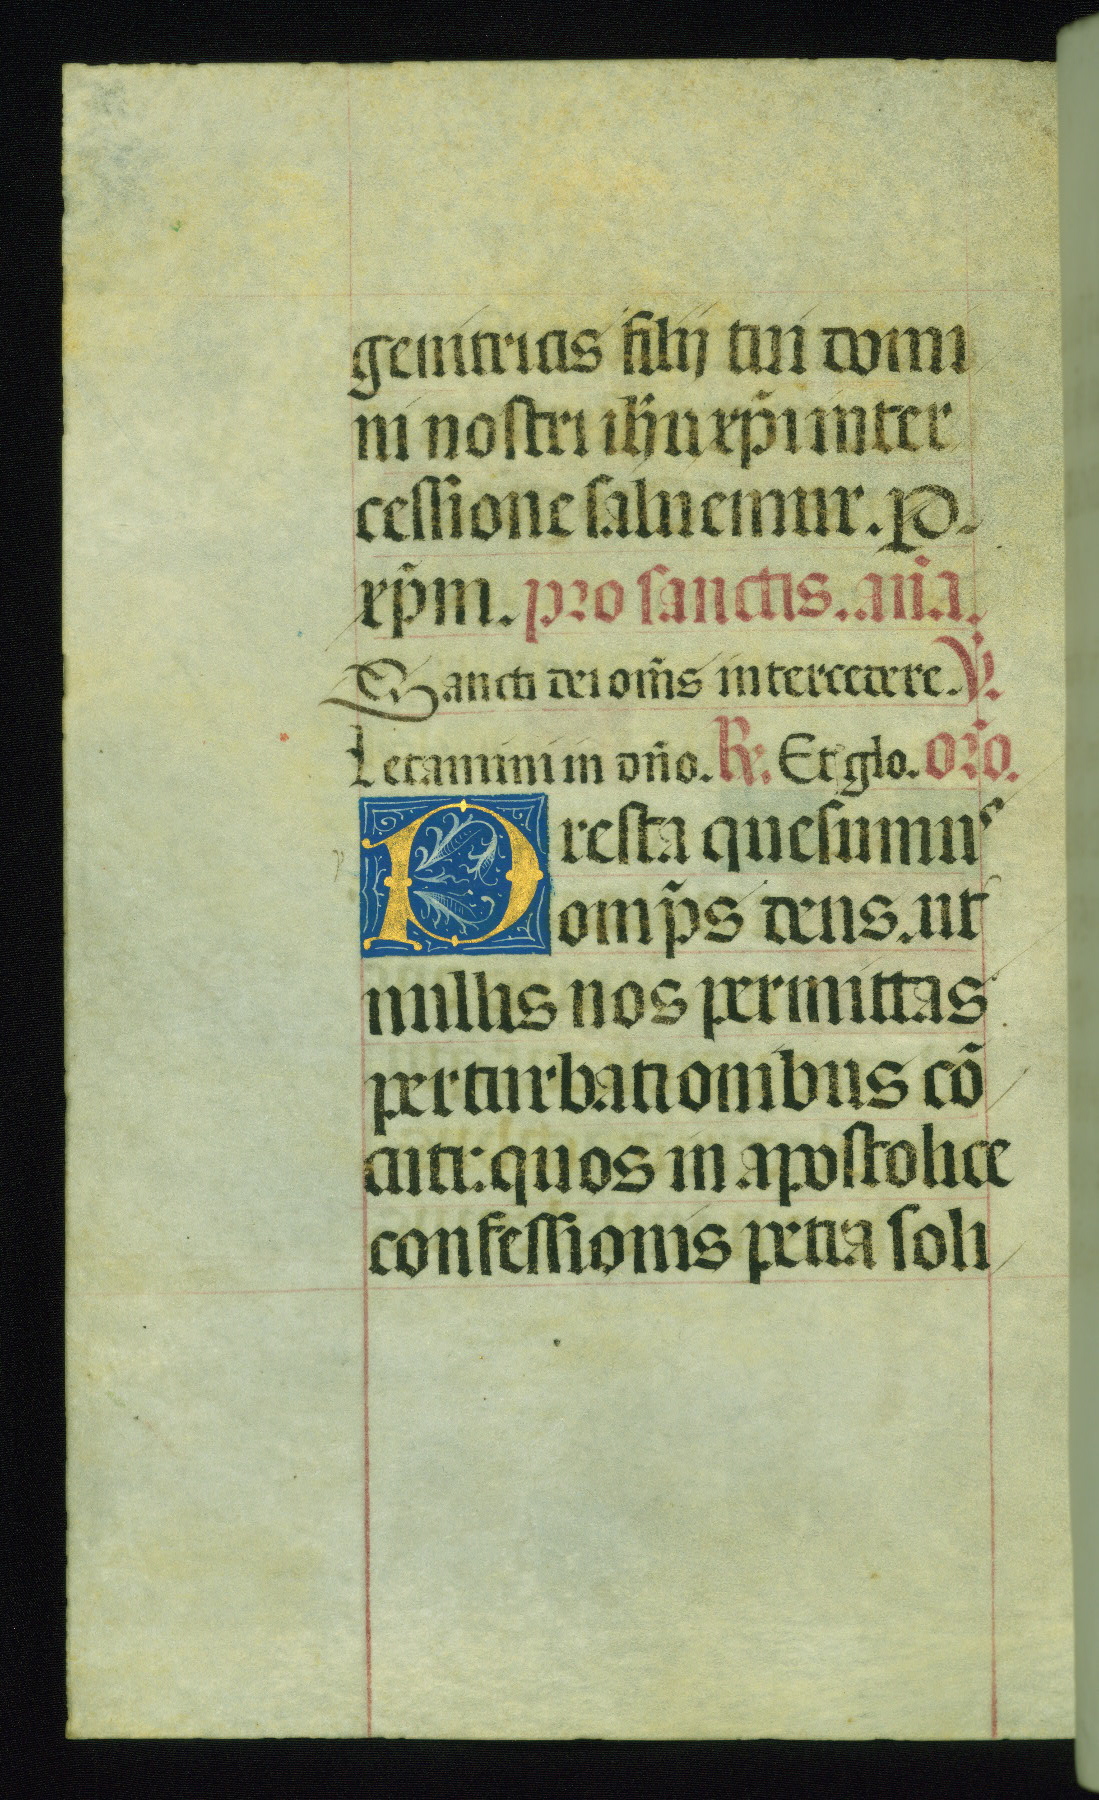 genitricis filij tui domi
ni nostri ihu xp̄i inter
cessione saluemur. P.
xp̄m. pro sanctis. an̄a.
Sancti dei om̄s intercedere. ℣.
Letamini in dn̄o. ℟. Et glo. or̄o.
Presta quesumus
omp̄s deus. ut
nullis nos permittas
perturbationibus cō
cuti: quos in apostolice
confessionis petra soli